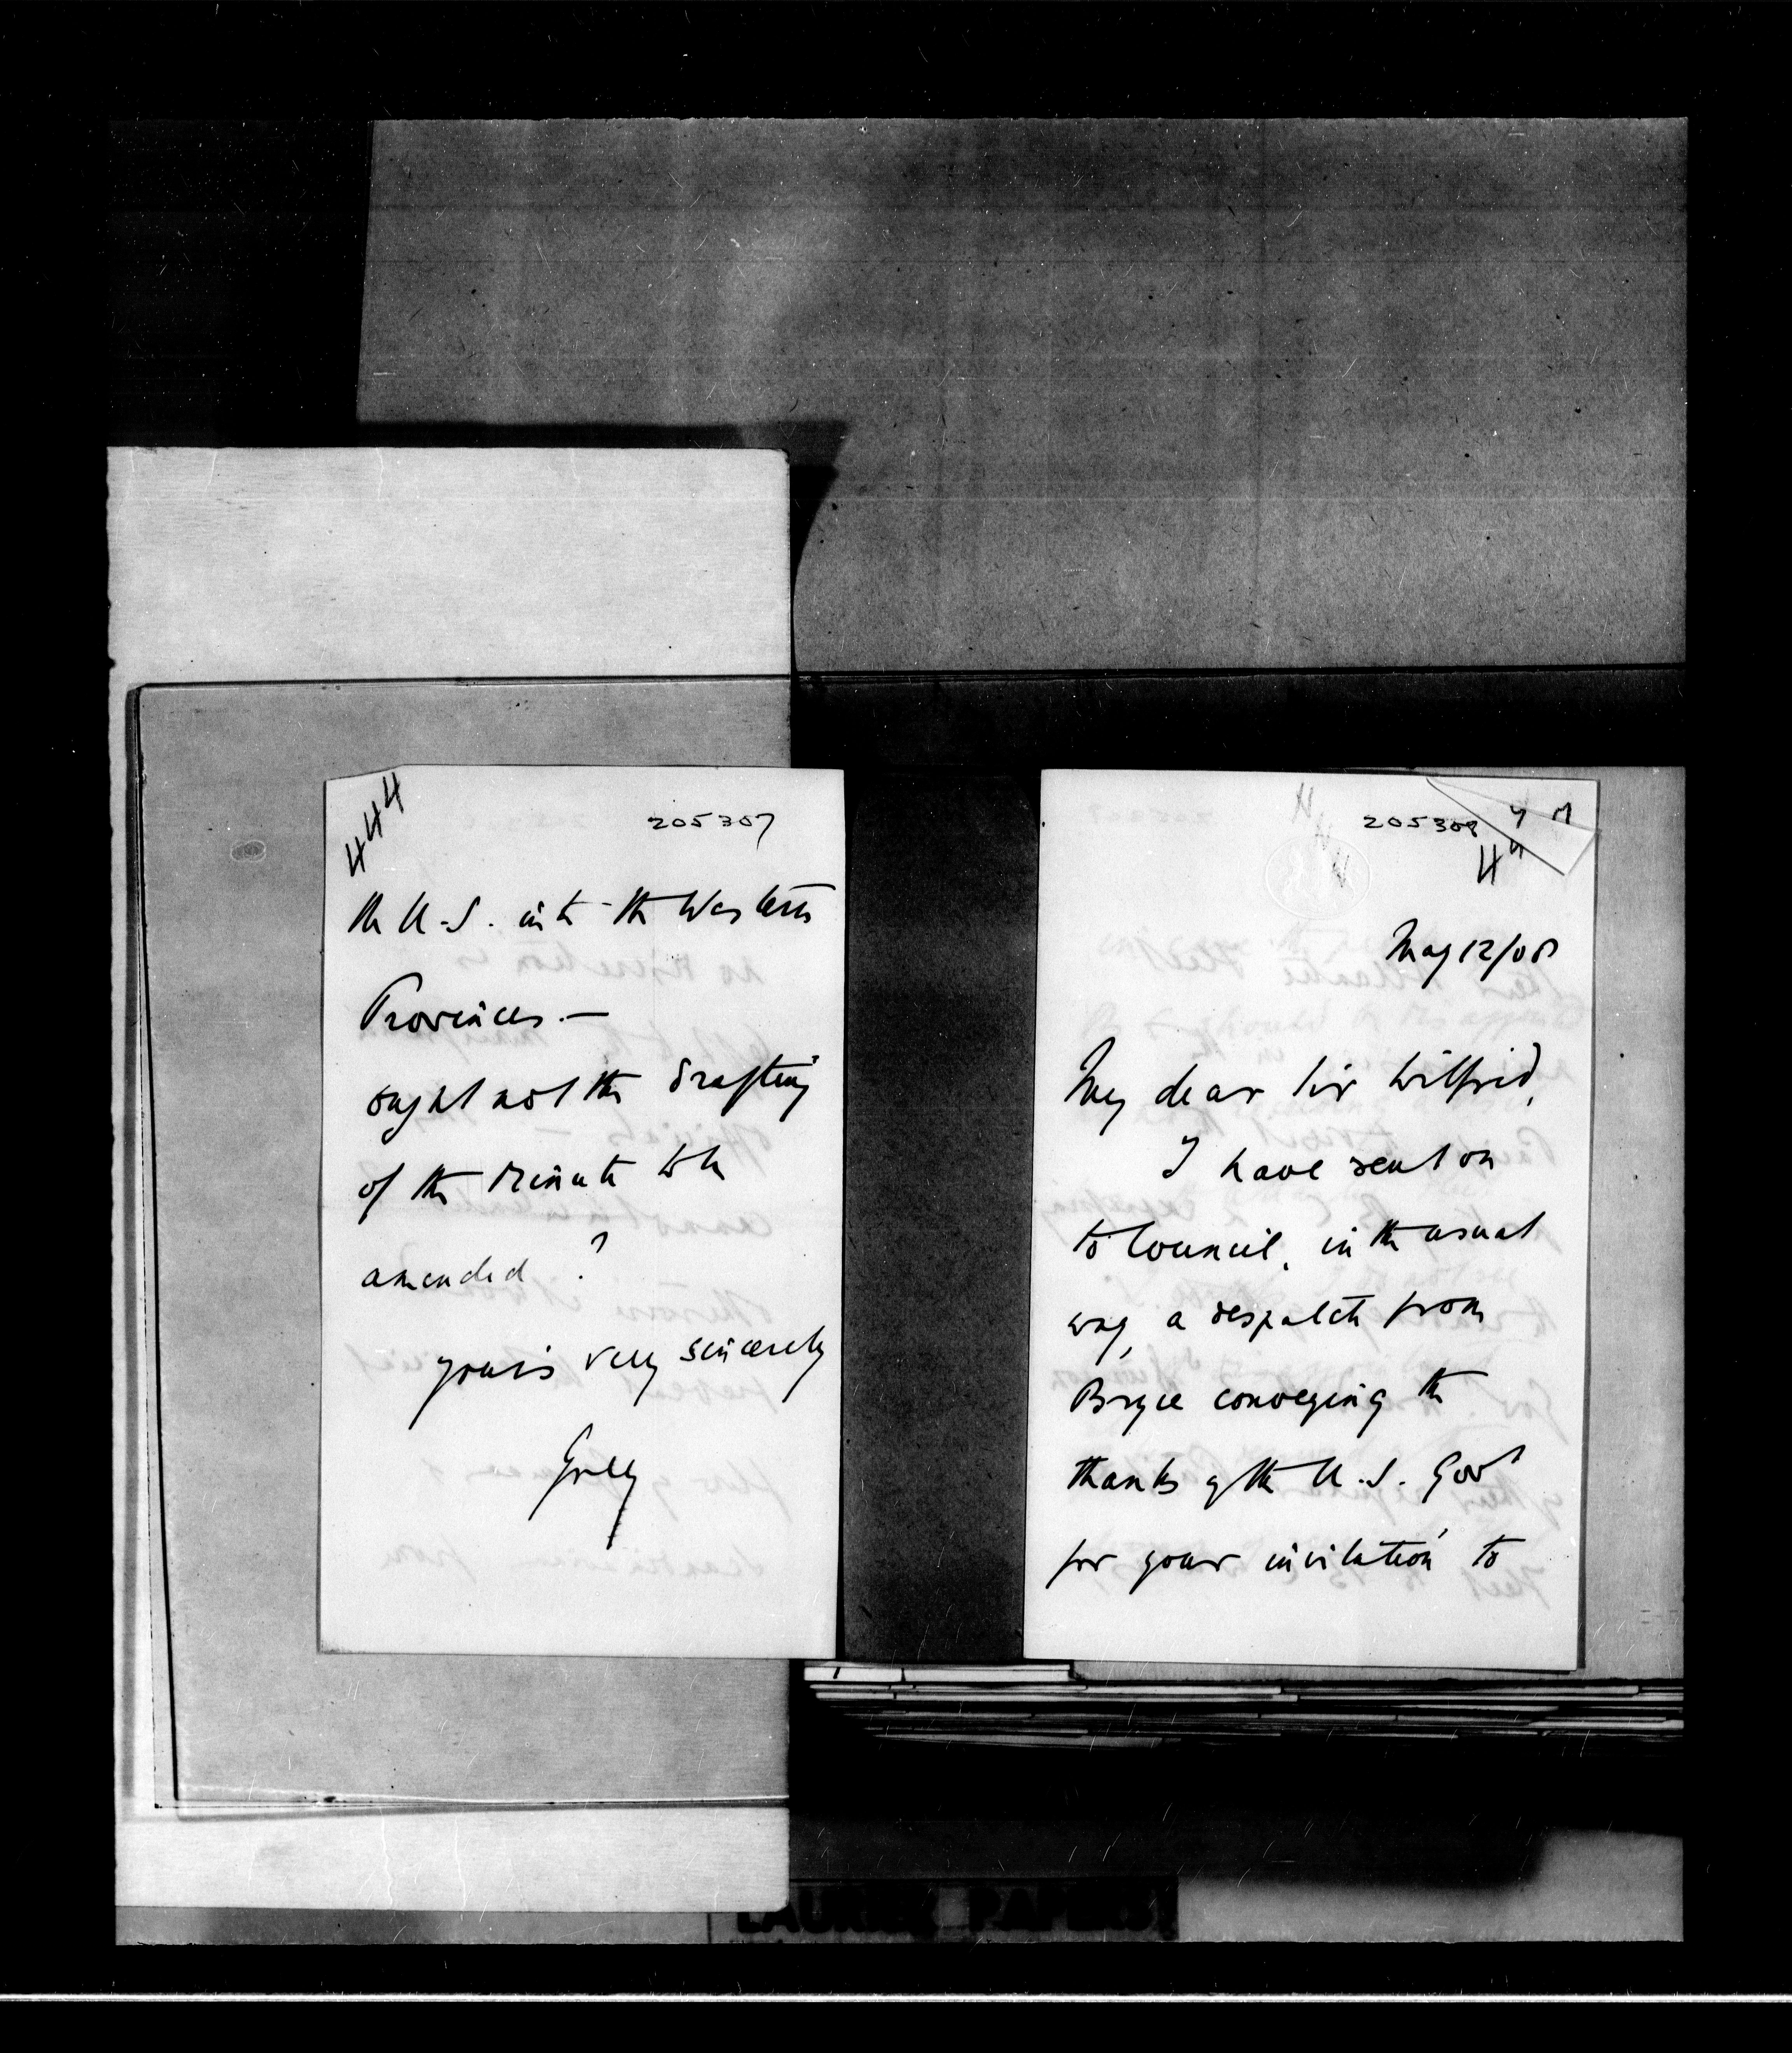 444
205307
the U.S. into the Western
Provinces. —
ought not the drafting
of the Minute to be
amended ?
yours very sincerely
Grey
205308
44
May 12/08
My dear Sir Wilfrid,
I have sent on
to Council, in the usual
way, a despatch from
Bryce conveying the
thanks of the U.S. Govt
for your invitation to
LAURIER PAPERS